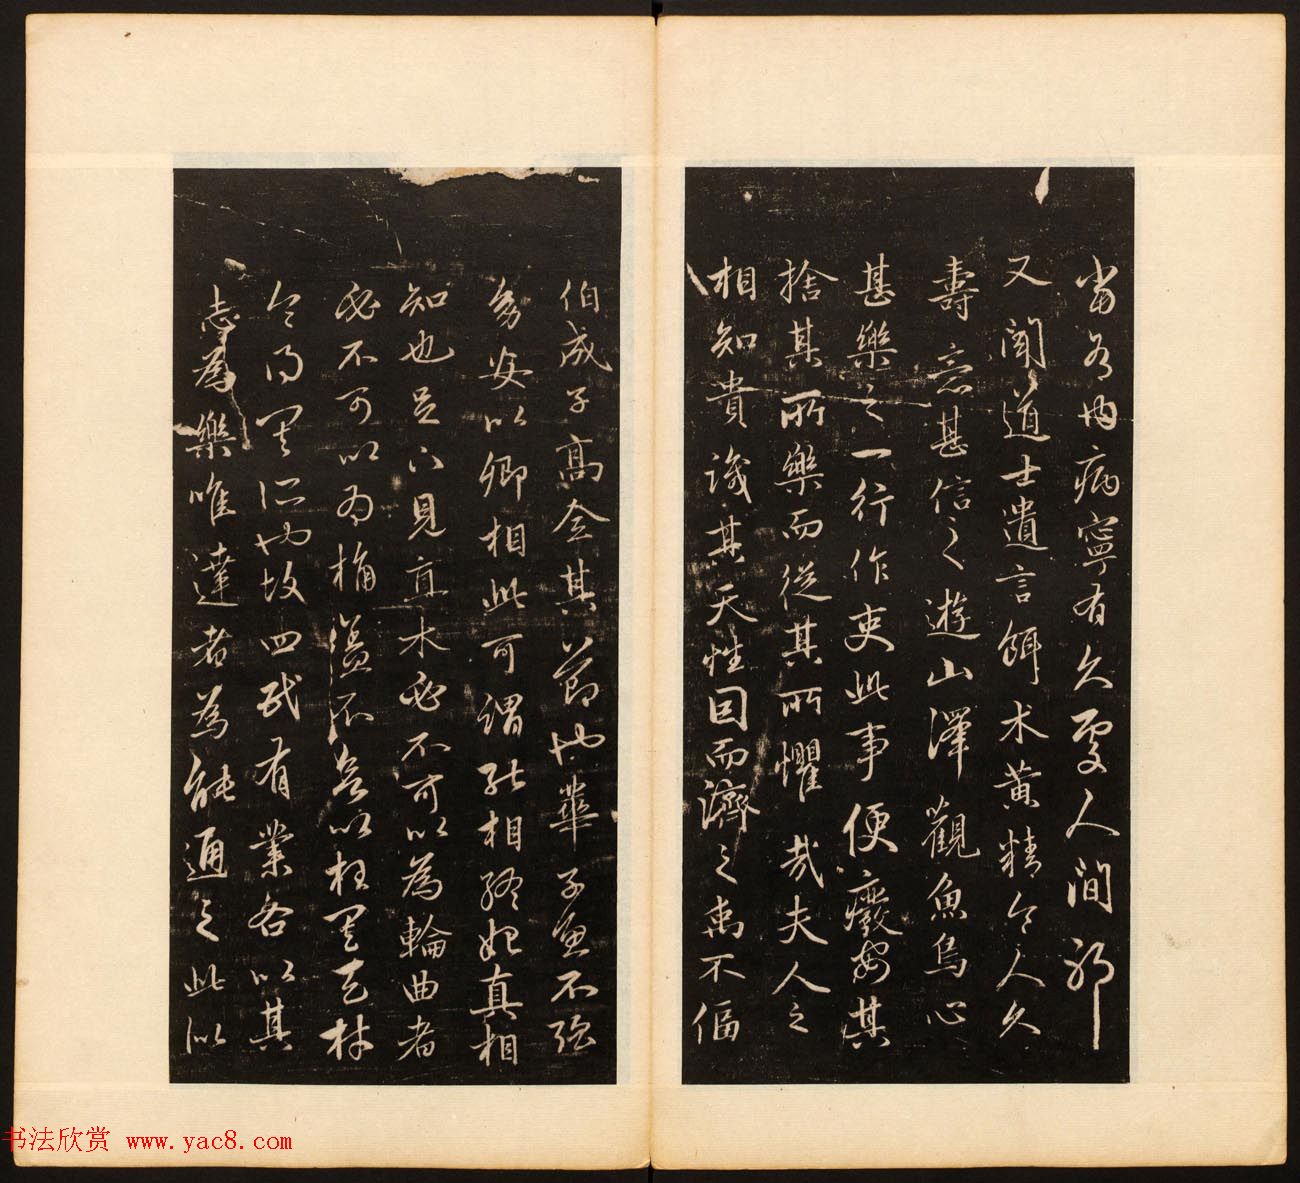 當有內病寧有久處人間邪
又聞道士遺言餌朮黃精令人久
壽意甚信之遊山澤觀魚鳥心
甚樂之一行作吏此事便廢安其
捨其所樂而從其所懼哉夫人之
相知貴識其天性因而濟之禹不偪
伯成子高全其節也華子魚不強
幼安以卿相此可謂能相終始真相
知也足下見直木必不可以為輪曲者
必不可以為桷蓋不欲以枉其天材
令得其所也故四民有業各以其
志為樂唯達者為能通之此似
书法欣赏 www.yac8.com